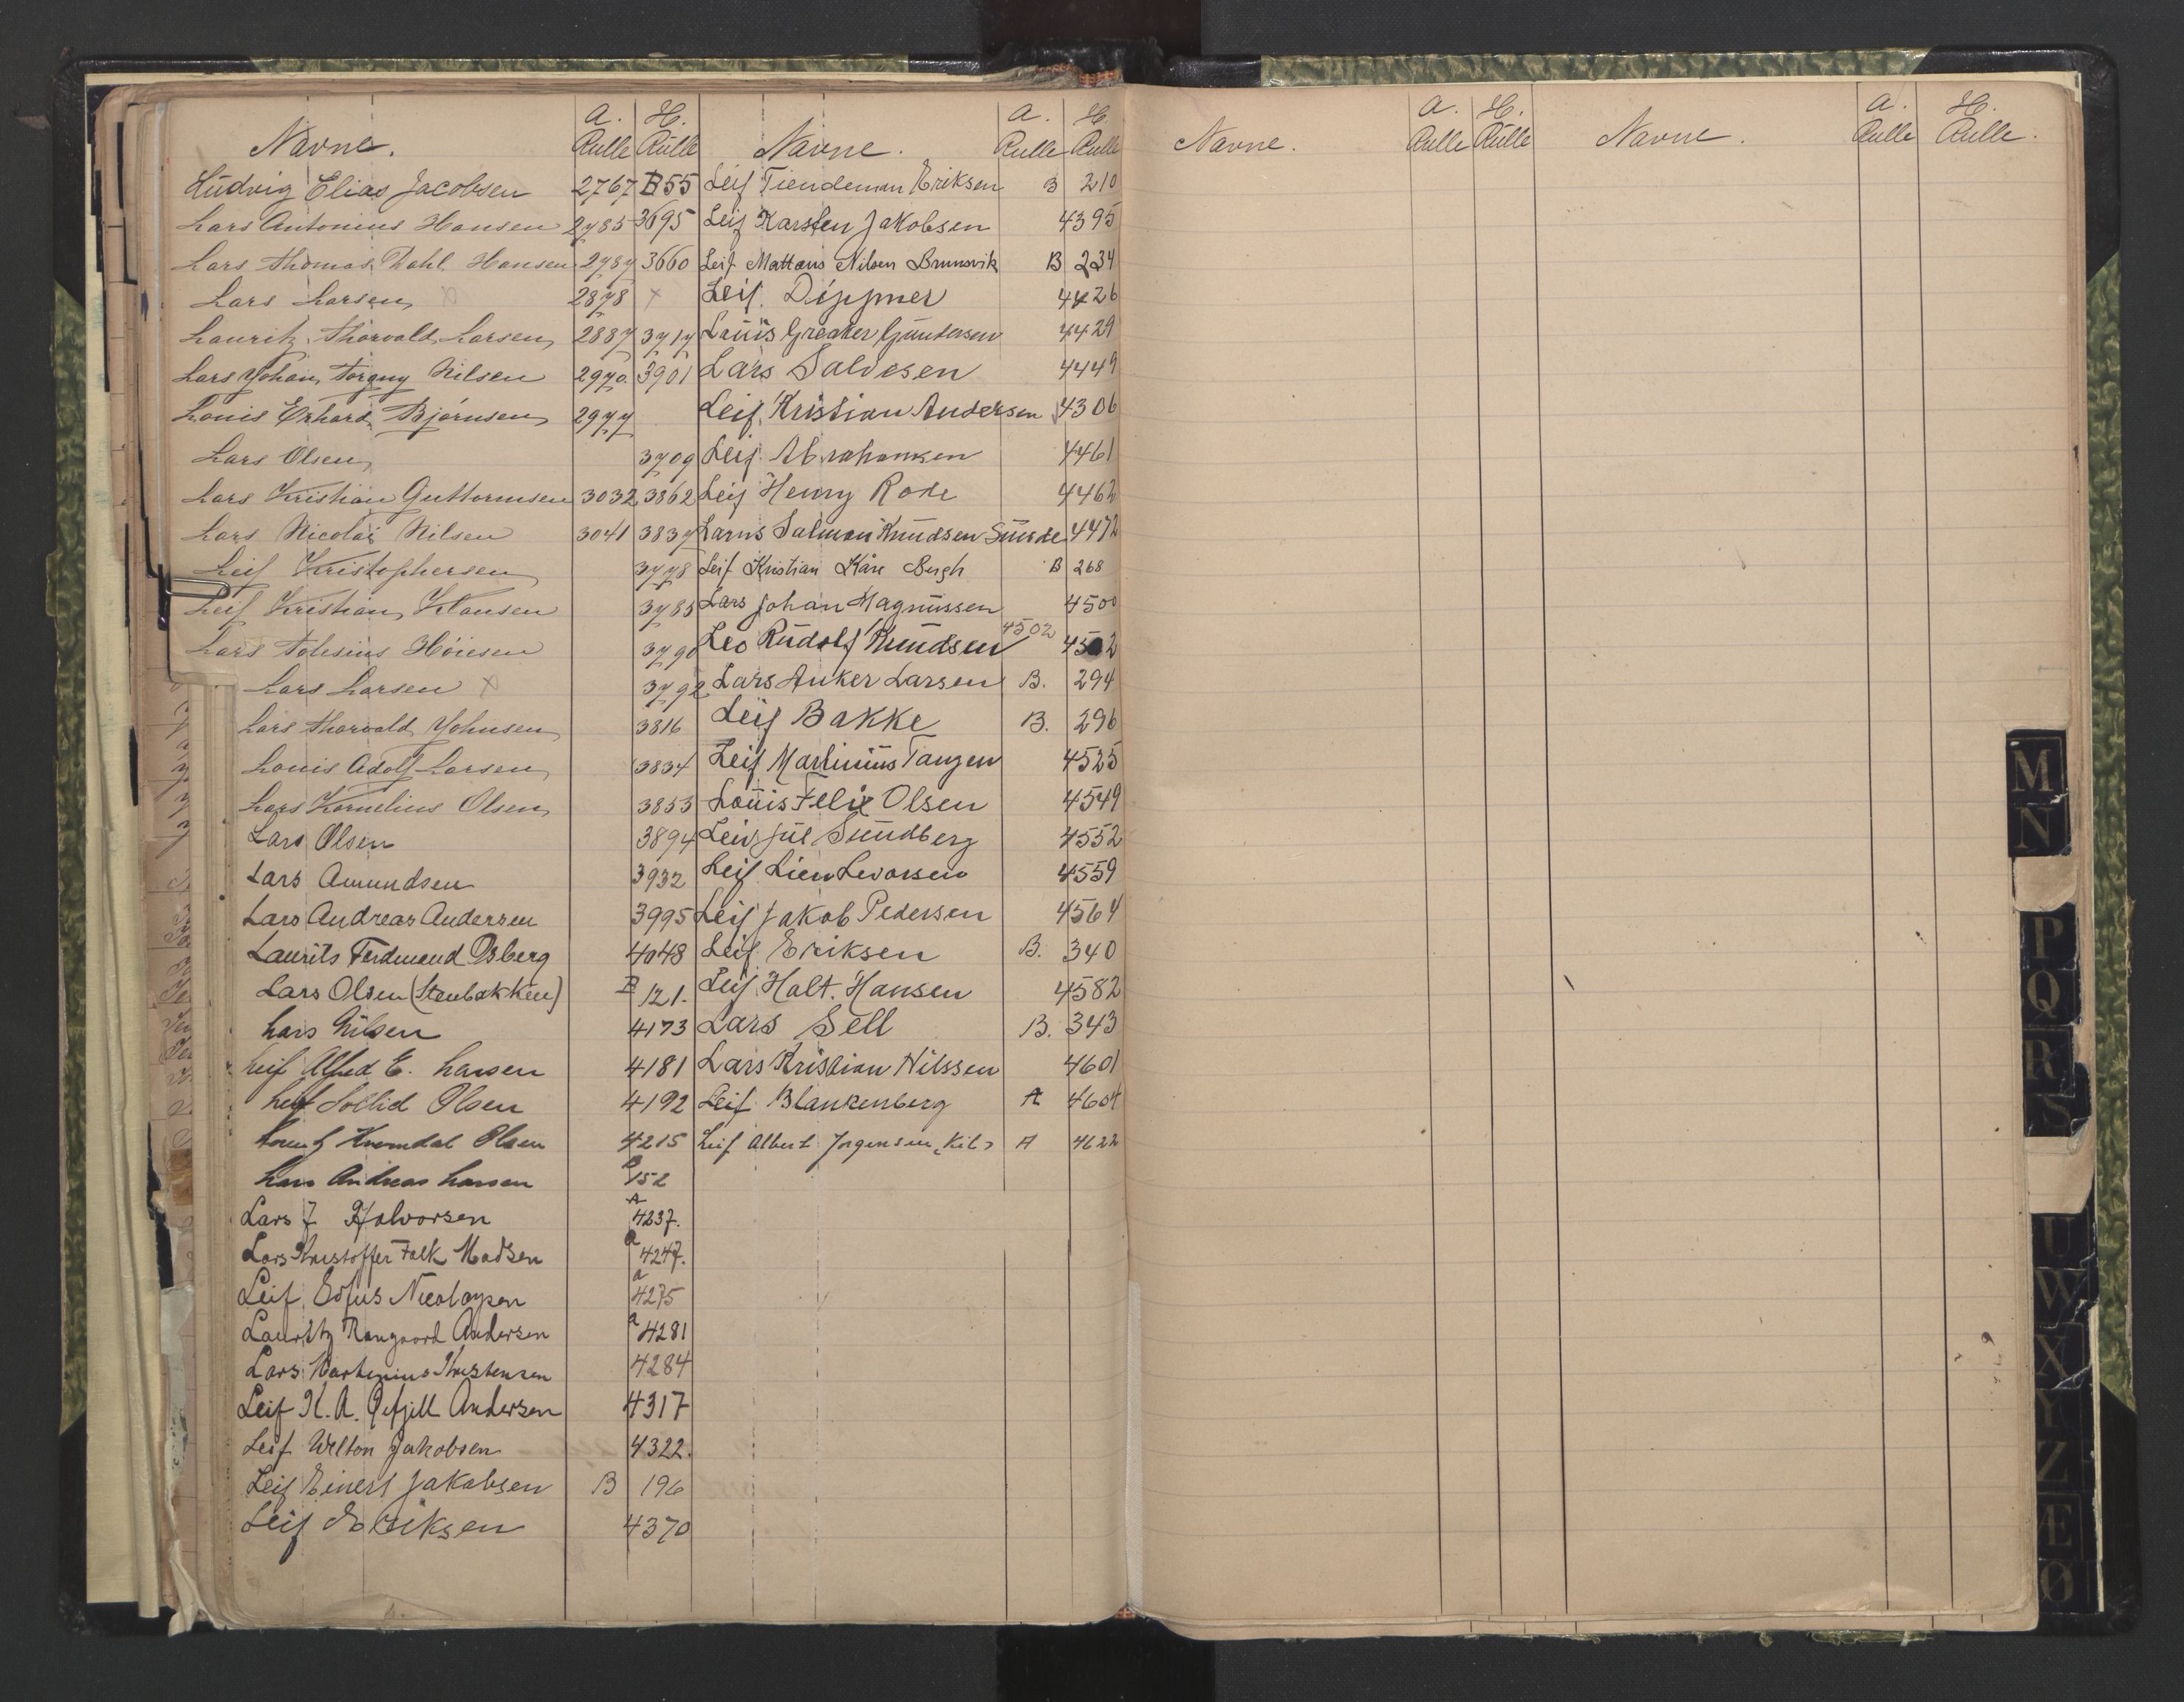 Navne. A. Rulle H. Rulle
Ludvig Elias Jacobsen 2767 B55
Lars Antonius Hansen 2785 3695
Lars Thomas Dahl Hansen 2787 3660
Lars Larsen x 2878 x
Lauritz Thorvald Larsen 2887 3717
Lars Johan Torgny Nilsen 2970. 3901
Louis Erhard Bjørnsen 2977
Lars Olsen 3709
Lars Kristian Guttormsen 3032 3862
Lars Nicolai Nilsen 3041 3837
Leif Kristophersen 3778
Leif Kristian Klausen 3785
Lars Høiesen 3790
Lars Larsen x 3792
Lars Thorvald Johnsen 3816
Louis Adolf Larsen 3834
Lars Kornelius Olsen 3853
Lars Olsen 3894
Lars Amundsen 3932
Lars Andreas Andersen 3995
Laurits Ferdinend Osberg 4048
Lars Olsen (Stenbakken) B 121.
Lars Nilsen 4173
Leif Alfred E. Larsen 4181
Leif Sollid Olsen 4192
Olsen 4215
Lars Andreas Larsen B 152
Lars J Halvorsen A 4237.
Lars Kristoffer Falk Madsen a 4247.
Leif Nicolaysen a 4275
Lauritz Andersen a 4281
Lars Martinius Kristensen 4284
Leif K. A. Andersen 4317
Leif Welton Jakobsen 4322.
Leif Einert Jakobsen B 196
Leif Eriksen 4370
Navne. A. Rulle H. Rulle
Leif Tiendeman Eriksen B 210
Leif Karsten Jakobsen 4395
Leif Mattæus Nilsen Brunsvik B 234
Leif. Dippner 4426
Louis Greaker Gundersen 4429
Lars Salvesen 4449
Leif Kristian Andersen 4306
Leif. Abrahamsen 4461
Leif Henry Rode 4462
Salman Knudsen 4472
Leif Kristian Kåre Bergh B 268
Lars Johan Magnussen 4500
Leo Rudolf Knudsen 4502 4502
Lars Anker Larsen B. 294
Leif Bakke B. 296
Leif Martinius Tangen 4525
Louis Felix Olsen 4549
Leiv Jul Sundberg 4552
Leif Lien Levorsen 4559
Leif Jakob Pedersen 4564
Leif Eriksen B. 340
Leif Halt. Hansen 4582
Lars Sell B. 343
Lars Kristian Nilssen 4601
Leif Blankenberg A 4604
Leif Albert Jørgensen A 4622
Navne. A. Rulle H. Rulle Navne. A. Rulle H. Rulle.
M
N
P
Q
R
S
U
W
X
Y
Z
Æ
Ø